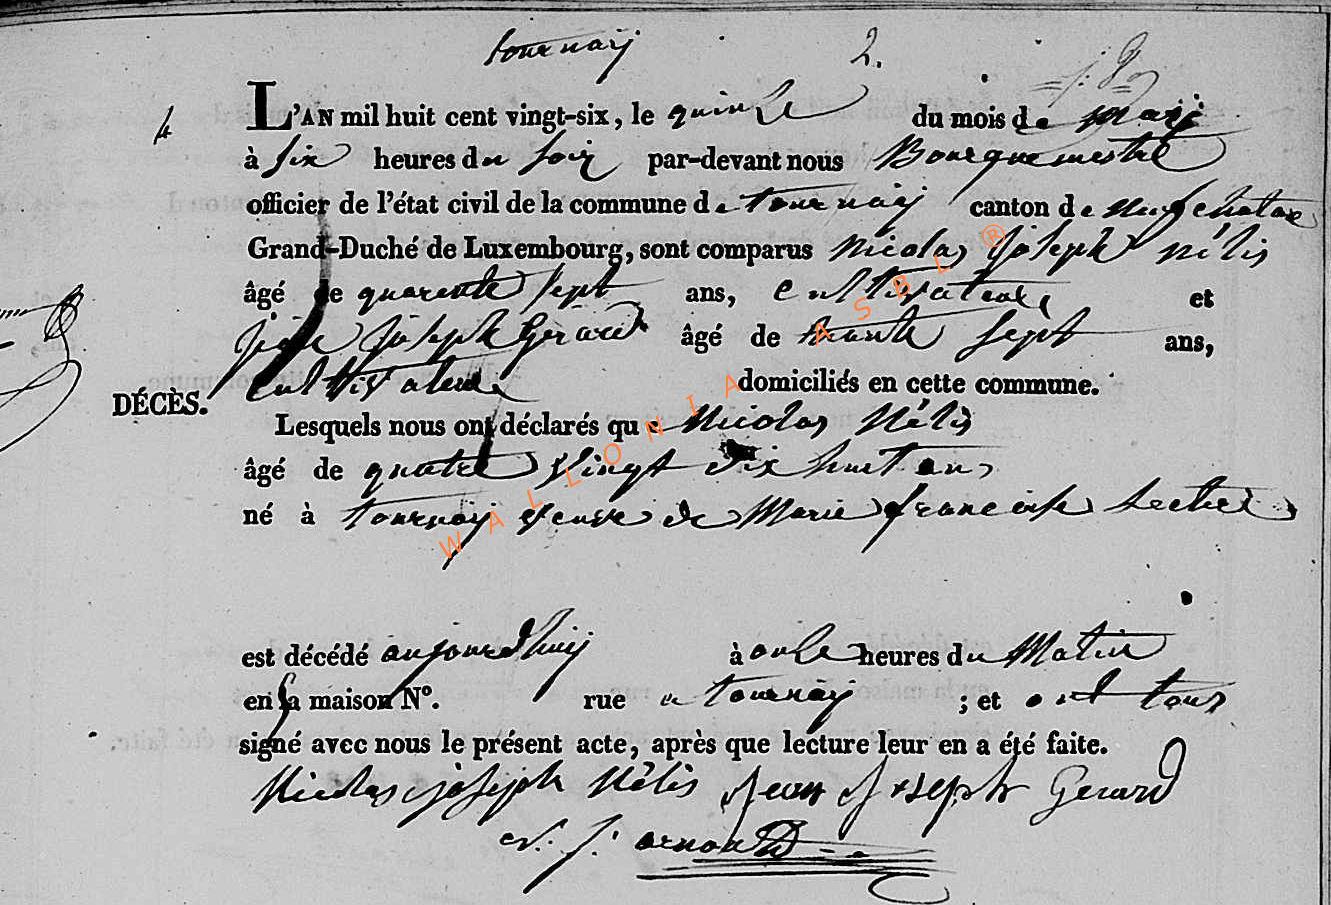 tournay 2.
4 L'AN mil huit cent vingt-six, le quinze du mois de mars
à six heures du soir par-devant nous Bourquemestre
officier de l'état civil de la commune de tournay canton de neufchateau
Grand-Duché de Luxembourg, sont comparus Nicolas joseph Nélis
âgé de quarente sept ans, cultivateur et
jean joseph Gerard âgé de trente sept ans,
cultivateur domiciliés en cette commune.
DÉCÈS.
Lesquels nous ont déclarés que Nicolas Nélis
âgé de quatre vingt dix huit ans
né à tournay veuve de Marie francoise
est décédé aujourdhuy à onze heures du Matin
en sa maison N°. rue a tournay ; et ont tous
signé avec nous le présent acte, après que lecture leur en a été faite.
Nicolas joseph Nélis Jean Joseph Gerard
N. J. arnould
WALLONIA ASBL ®